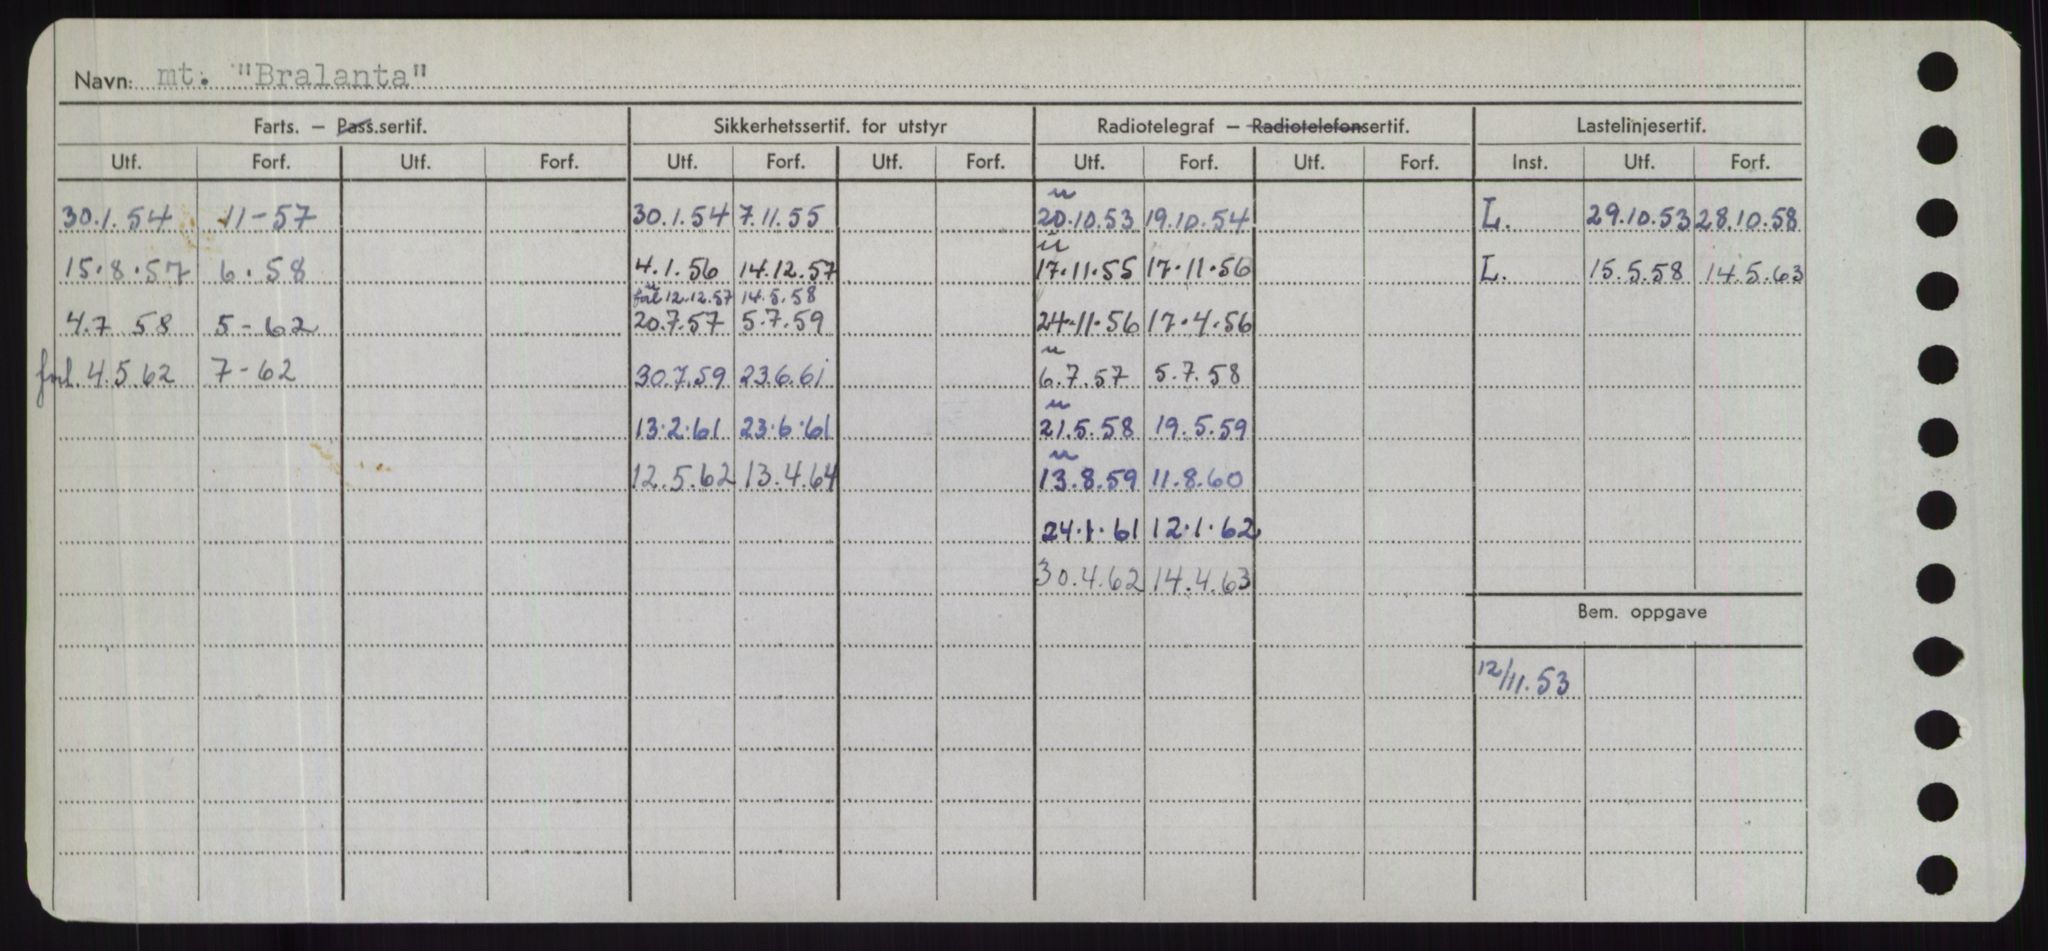 Navn: mt. "Bralanta"
Farts. – Pass.sertif. Sikkerhetssertif. for utstyr Radiotelegraf – Radiotelefonsertif. Lastelinjesertif.
Utf. Forf. Utf. Forf. Utf. Forf. Utf. Forf. Utf. Forf. Utf. Forf. Inst. Utf. Forf.
u
30.1.54 11-57 30.1.54 7.11.55 20.10.53 19.10.54 L. 29.10.53 28.10.58
u
15.8.57 6.58 4.1.56 14.12.57 17.11.55 17.11.56 L. 15.5.58 14.5.63
12.12.57 14.5.58
4.7 58 5-62 20.7.57 5.7.59 24.11.56 17.4.56
u
4.5.62 7-62 30.7.59 23.6.61 6.7.57 5.7.58
u
13.2.61 23.6.61 21.5.58 19.5.59
u
12.5.62 13.4.64 13.8.59 11.8.60
24.1.61 12.1.62
30.4.62 14.4.63
Bem. oppgave
12/11.53